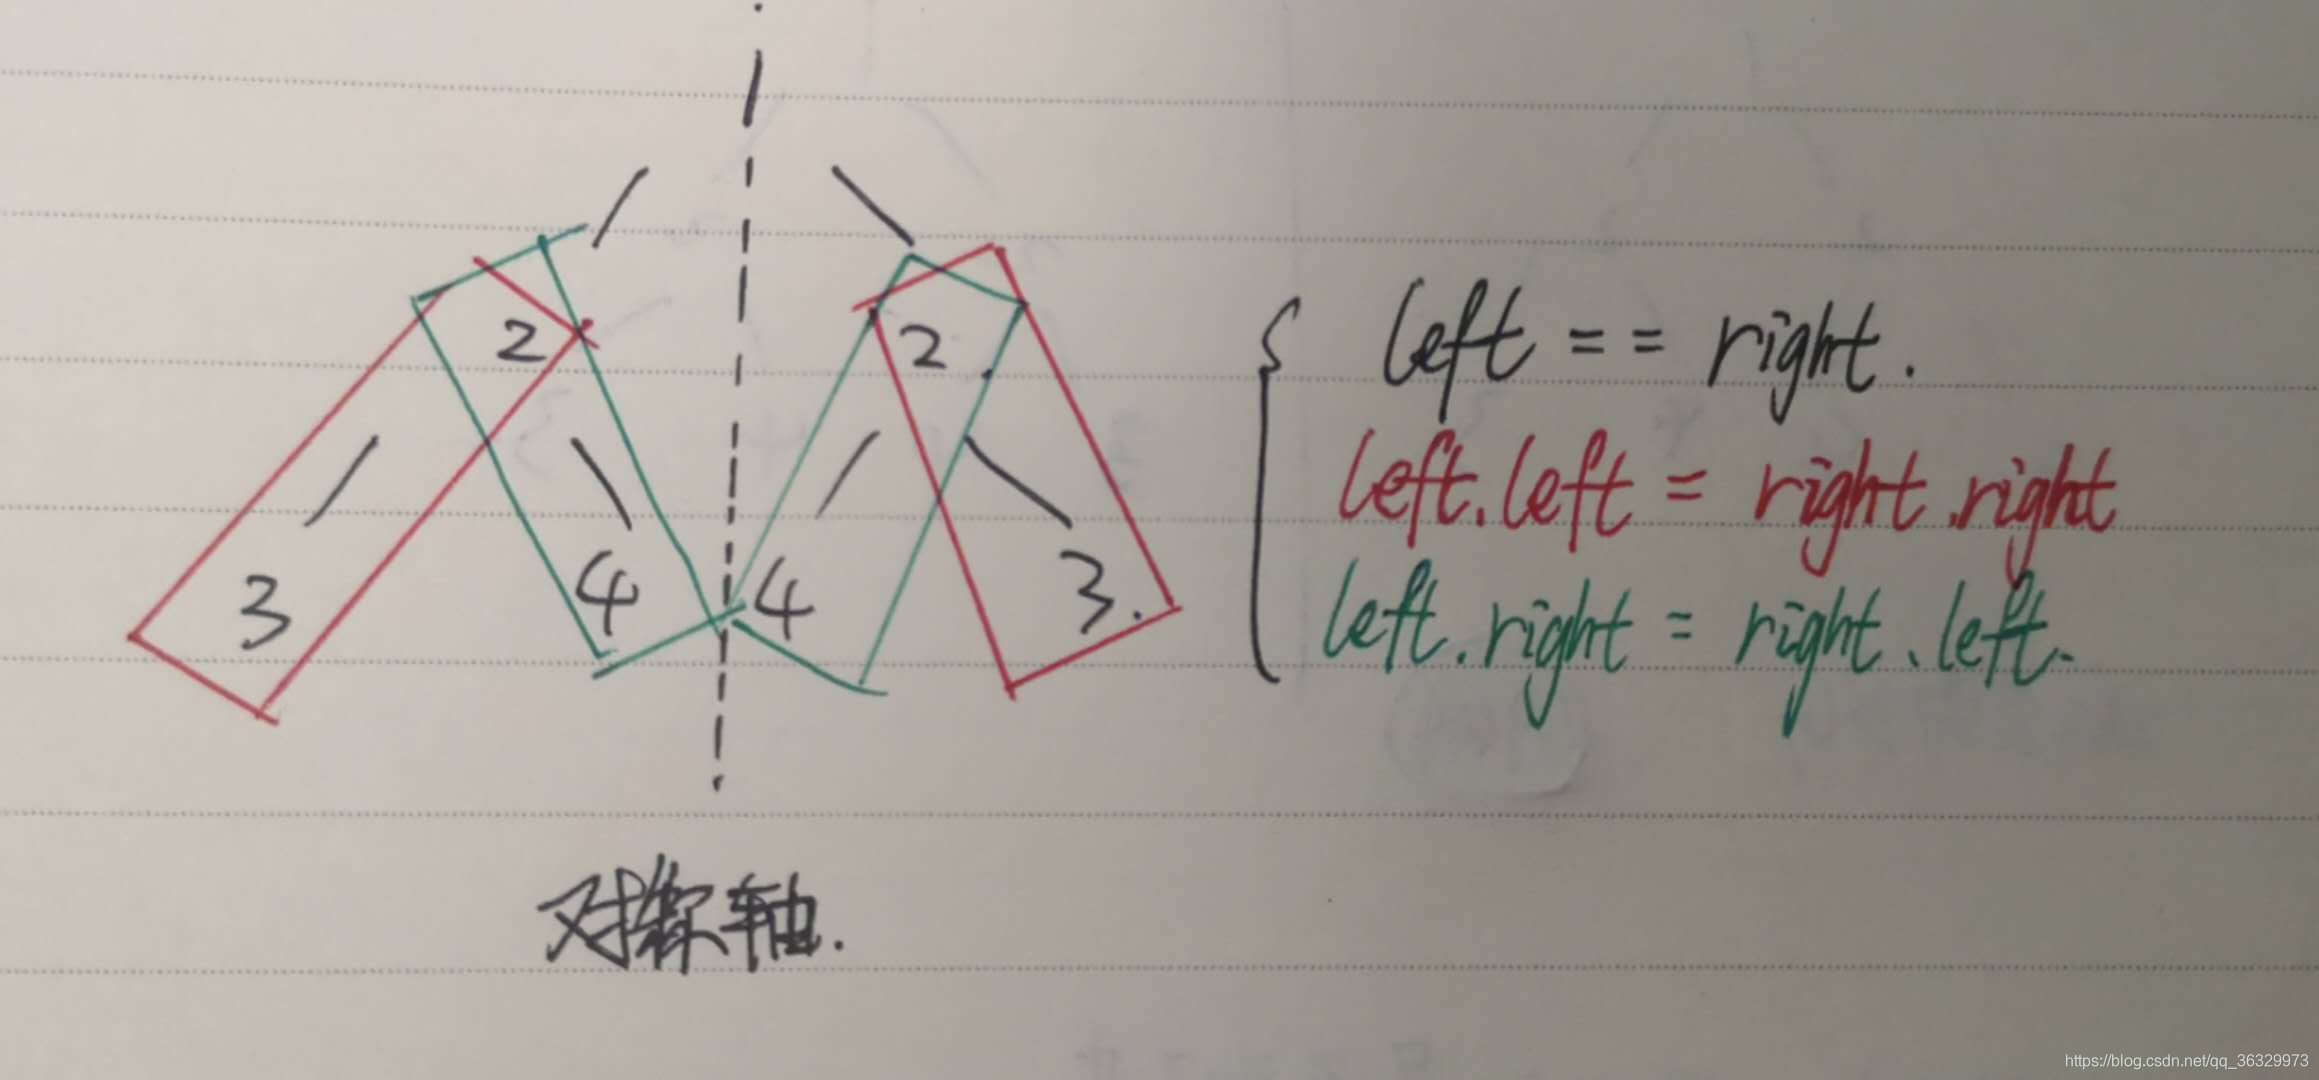 2 2
3 4 4 3.
left == right.
left.left = right.right
left.right = right.left.
对称轴.
https://blog.csdn.net/qq_36329973